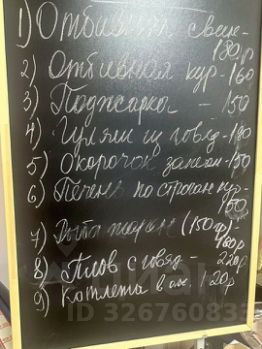 1) Отбивная свин-
180р
2) Отбивная кур - 160
3) Поджарка - 150
4) Гуляш из говяд - 190
5) Окорочок запеч - 150
6) Печень по строган кур -
150
7) Рыба жарен (150 гр) -
160р
8) Плов с говяд - 220р
9) Котлета в ас. 120р
ID 326760833